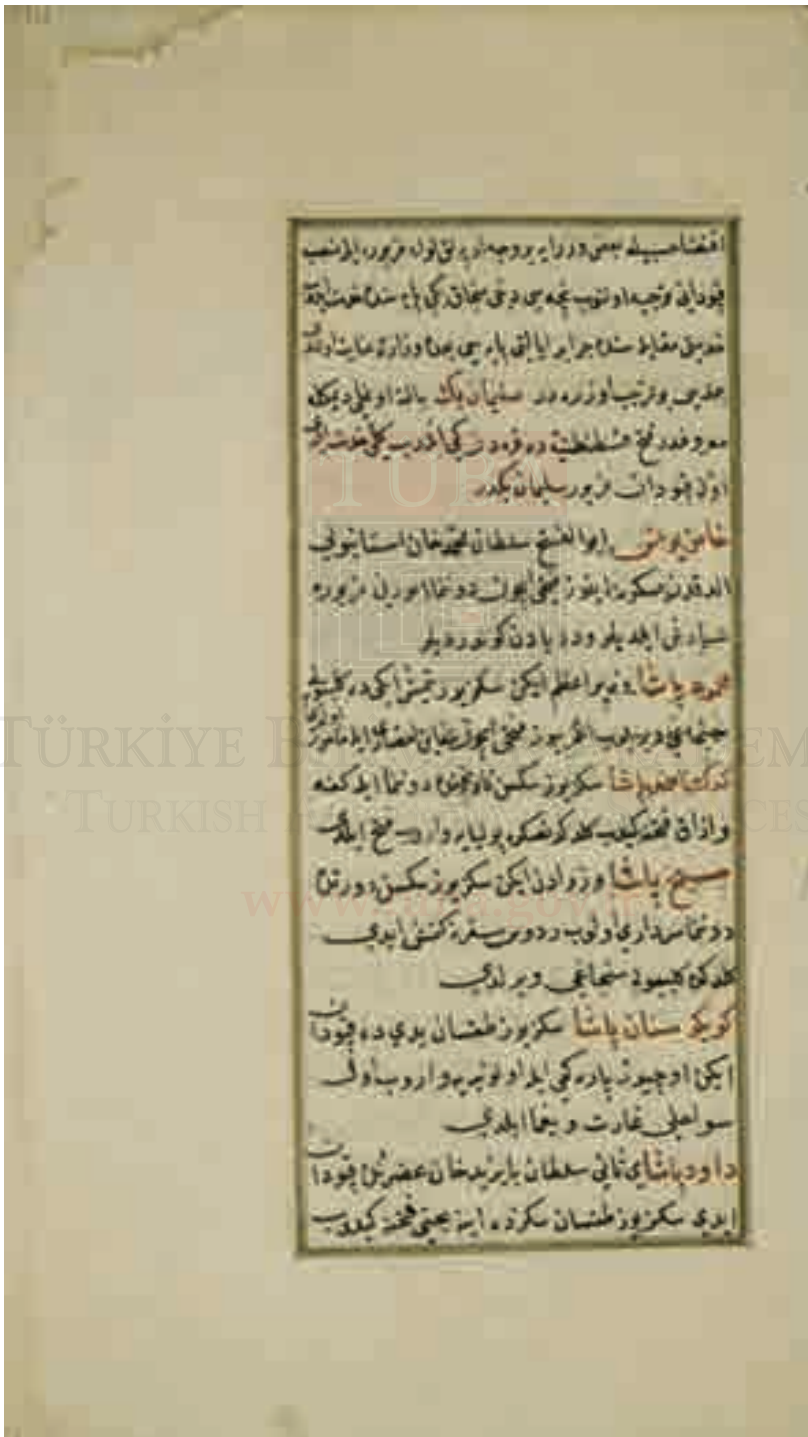 اقتضا حسبیله بعض وزرایه بر وجه اربه لق اول مزبوره ایله منصب
قپودانی توجیه اولنوب نچه سی دخی سنجاق بکی پایه سنده خدمت ایدوب
مقابله سنده جزایر ایالتی پایه سی بعده وزارت عنایت اولندی
بو ترتیب اوزره در سلیمان بك بالطه اوغلی دیمکله
معروفدر فتح قسطنطنیه ده قره دن کمی ایدوب کلی خدمت ایتدی
اول قپودان مزبور سلیمان بکدر
خاص یونس ابو الفتح سلطان محمد خان استانبولی
الدقدن صکره اینوز فتحی ایچون دونما امورین مزبوره
سپارش ایلدیلر و دریادن کوندردیلر
محمود پاشا وزیر اعظم ایکن سکز یوز یتمش ایکی ده کلیبولی
ویریلوب اغریبوز فتحی ایچون ایله مأمور اولدی
کدك احمد پاشا سکز یوز سکسن دونما ایله کفه
و ازاق فتحنه کیدوب کلدکدنصکره پولیایه واروب فتح ایلدی
مسیح پاشا وزرادن ایکن سکز یوز سکسن دورتده
دونما سرداری اولوب ردوس سفرنه کتمش ایدی
کلدکده کلیبولی سنجاغی ویرلدی
کویکو سنان پاشا سکز یوز طقسان یدی ده قپودان
ایکن اوچیوز پاره کمی ایله اولونیه یه واروب اول
سواحلی غارت و یغما ایلدی
داود پاشای ثانی سلطان بایزید خان عصرنده قپودان
ایدی سکز یوز طقسان سکزده اینه بختی فتحنه کیدوب
TÜBA
TÜRKİYE
TURKISH
www.tuba.gov.tr